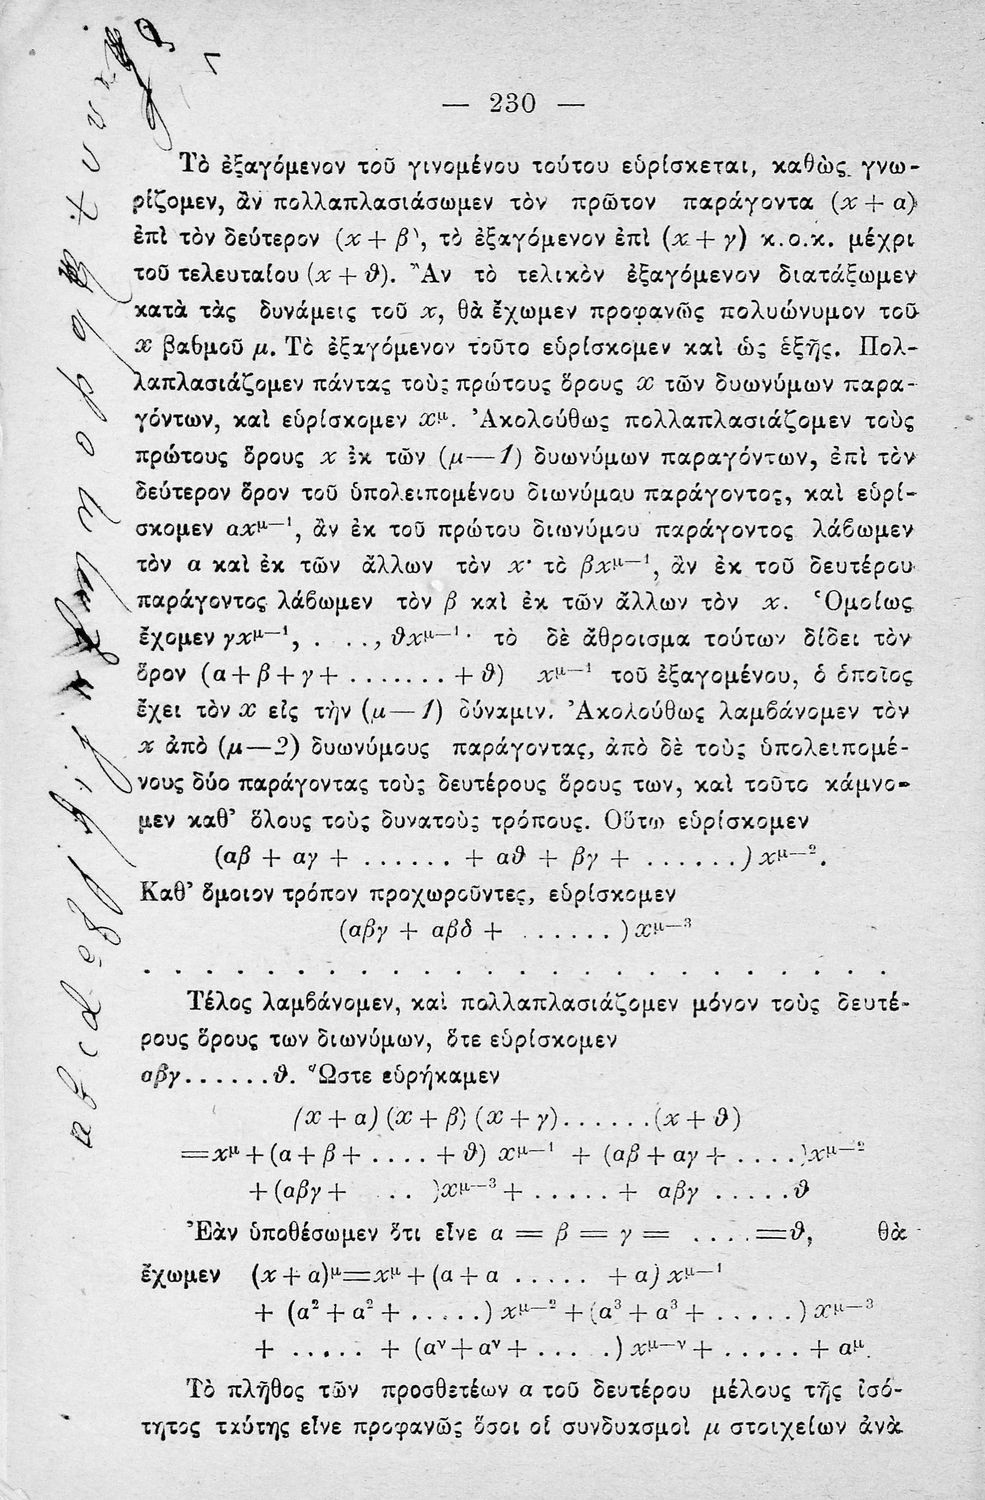 — 230 —
Τὸ ἐξαγόμενον τοῦ γινομένου τούτου εὑρίσκεται, καθὼς γνω-
ρίζομεν, ἂν πολλαπλασιάσωμεν τὸν πρῶτον παράγοντα (x + α)
ἐπὶ τὸν δεύτερον (x + β), τὸ ἐξαγόμενον ἐπὶ (x + γ) κ.ο.κ. μέχρι
τοῦ τελευταίου (x + ϑ). Ἂν τὸ τελικὸν ἐξαγόμενον διατάξωμεν
κατὰ τὰς δυνάμεις τοῦ x, θὰ ἔχωμεν προφανῶς πολυώνυμον τοῦ
x βαθμοῦ μ. Τὸ ἐξαγόμενον τοῦτο εὑρίσκομεν καὶ ὡς ἑξῆς. Πολ-
λαπλασιάζομεν πάντας τοὺς πρώτους ὅρους x τῶν δυωνύμων παρα-
γόντων, καὶ εὑρίσκομεν xᵘ. Ἀκολούθως πολλαπλασιάζομεν τοὺς
πρώτους ὅρους x ἐκ τῶν (μ—1) δυωνύμων παραγόντων, ἐπὶ τὸν
δεύτερον ὅρον τοῦ ὑπολειπομένου διωνύμου παράγοντος, καὶ εὑρί-
σκομεν αxᵘ—¹, ἂν ἐκ τοῦ πρώτου διωνύμου παράγοντος λάβωμεν
τὸν α καὶ ἐκ τῶν ἄλλων τὸν x· τὸ βxᵘ—¹, ἂν ἐκ τοῦ δευτέρου
παράγοντος λάβωμεν τὸν β καὶ ἐκ τῶν ἄλλων τὸν x. Ὁμοίως
ἔχομεν γxᵘ—¹, . . . ., ϑxᵘ—¹· τὸ δὲ ἄθροισμα τούτων δίδει τὸν
ὅρον (α + β + γ + ....... + ϑ) xᵘ—¹ τοῦ ἐξαγομένου, ὁ ὁποῖος
ἔχει τὸν x εἰς τὴν (μ — 1) δύναμιν. Ἀκολούθως λαμβάνομεν τὸν
x ἀπὸ (μ—2) δυωνύμους παράγοντας, ἀπὸ δὲ τοὺς ὑπολειπομέ-
νους δύο παράγοντας τοὺς δευτέρους ὅρους των, καὶ τοῦτο κάμνο-
μεν καθ' ὅλους τοὺς δυνατοὺς τρόπους. Οὕτω εὑρίσκομεν
(αβ + αγ + ...... + αϑ + βγ + ......) xᵘ—².
Καθ' ὅμοιον τρόπον προχωροῦντες, εὑρίσκομεν
(αβγ + αβδ + ......) xᵘ—³
. . . . . . . . . . . . . . . . . . . . . . . .
Τέλος λαμβάνομεν, καὶ πολλαπλασιάζομεν μόνον τοὺς δευτέ-
ρους ὅρους των διωνύμων, ὅτε εὑρίσκομεν
αβγ......ϑ. Ὥστε εὑρήκαμεν
(x + α) (x + β) (x + γ)......(x + ϑ)
= xᵘ + (α + β + .... + ϑ) xᵘ—¹ + (αβ + αγ + ....)xᵘ—²
+ (αβγ + .. )xᵘ—³ + ..... + αβγ .....ϑ
Ἐὰν ὑποθέσωμεν ὅτι εἶνε α = β = γ = ....=ϑ, θὰ
ἔχωμεν (x + α)ᵘ=xᵘ + (α + α ..... + α) xᵘ—¹
+ (α² + α² + .....) xᵘ—² + (α³ + α³ + .....) xᵘ—³
+ ..... + (αᵛ + αᵛ + ... .) xᵘ—ᵛ + ..... + αᵘ.
Τὸ πλῆθος τῶν προσθετέων α τοῦ δευτέρου μέλους τῆς ἰσό-
τητος ταύτης εἶνε προφανῶς ὅσοι οἱ συνδυασμοὶ μ στοιχείων ἀνὰ